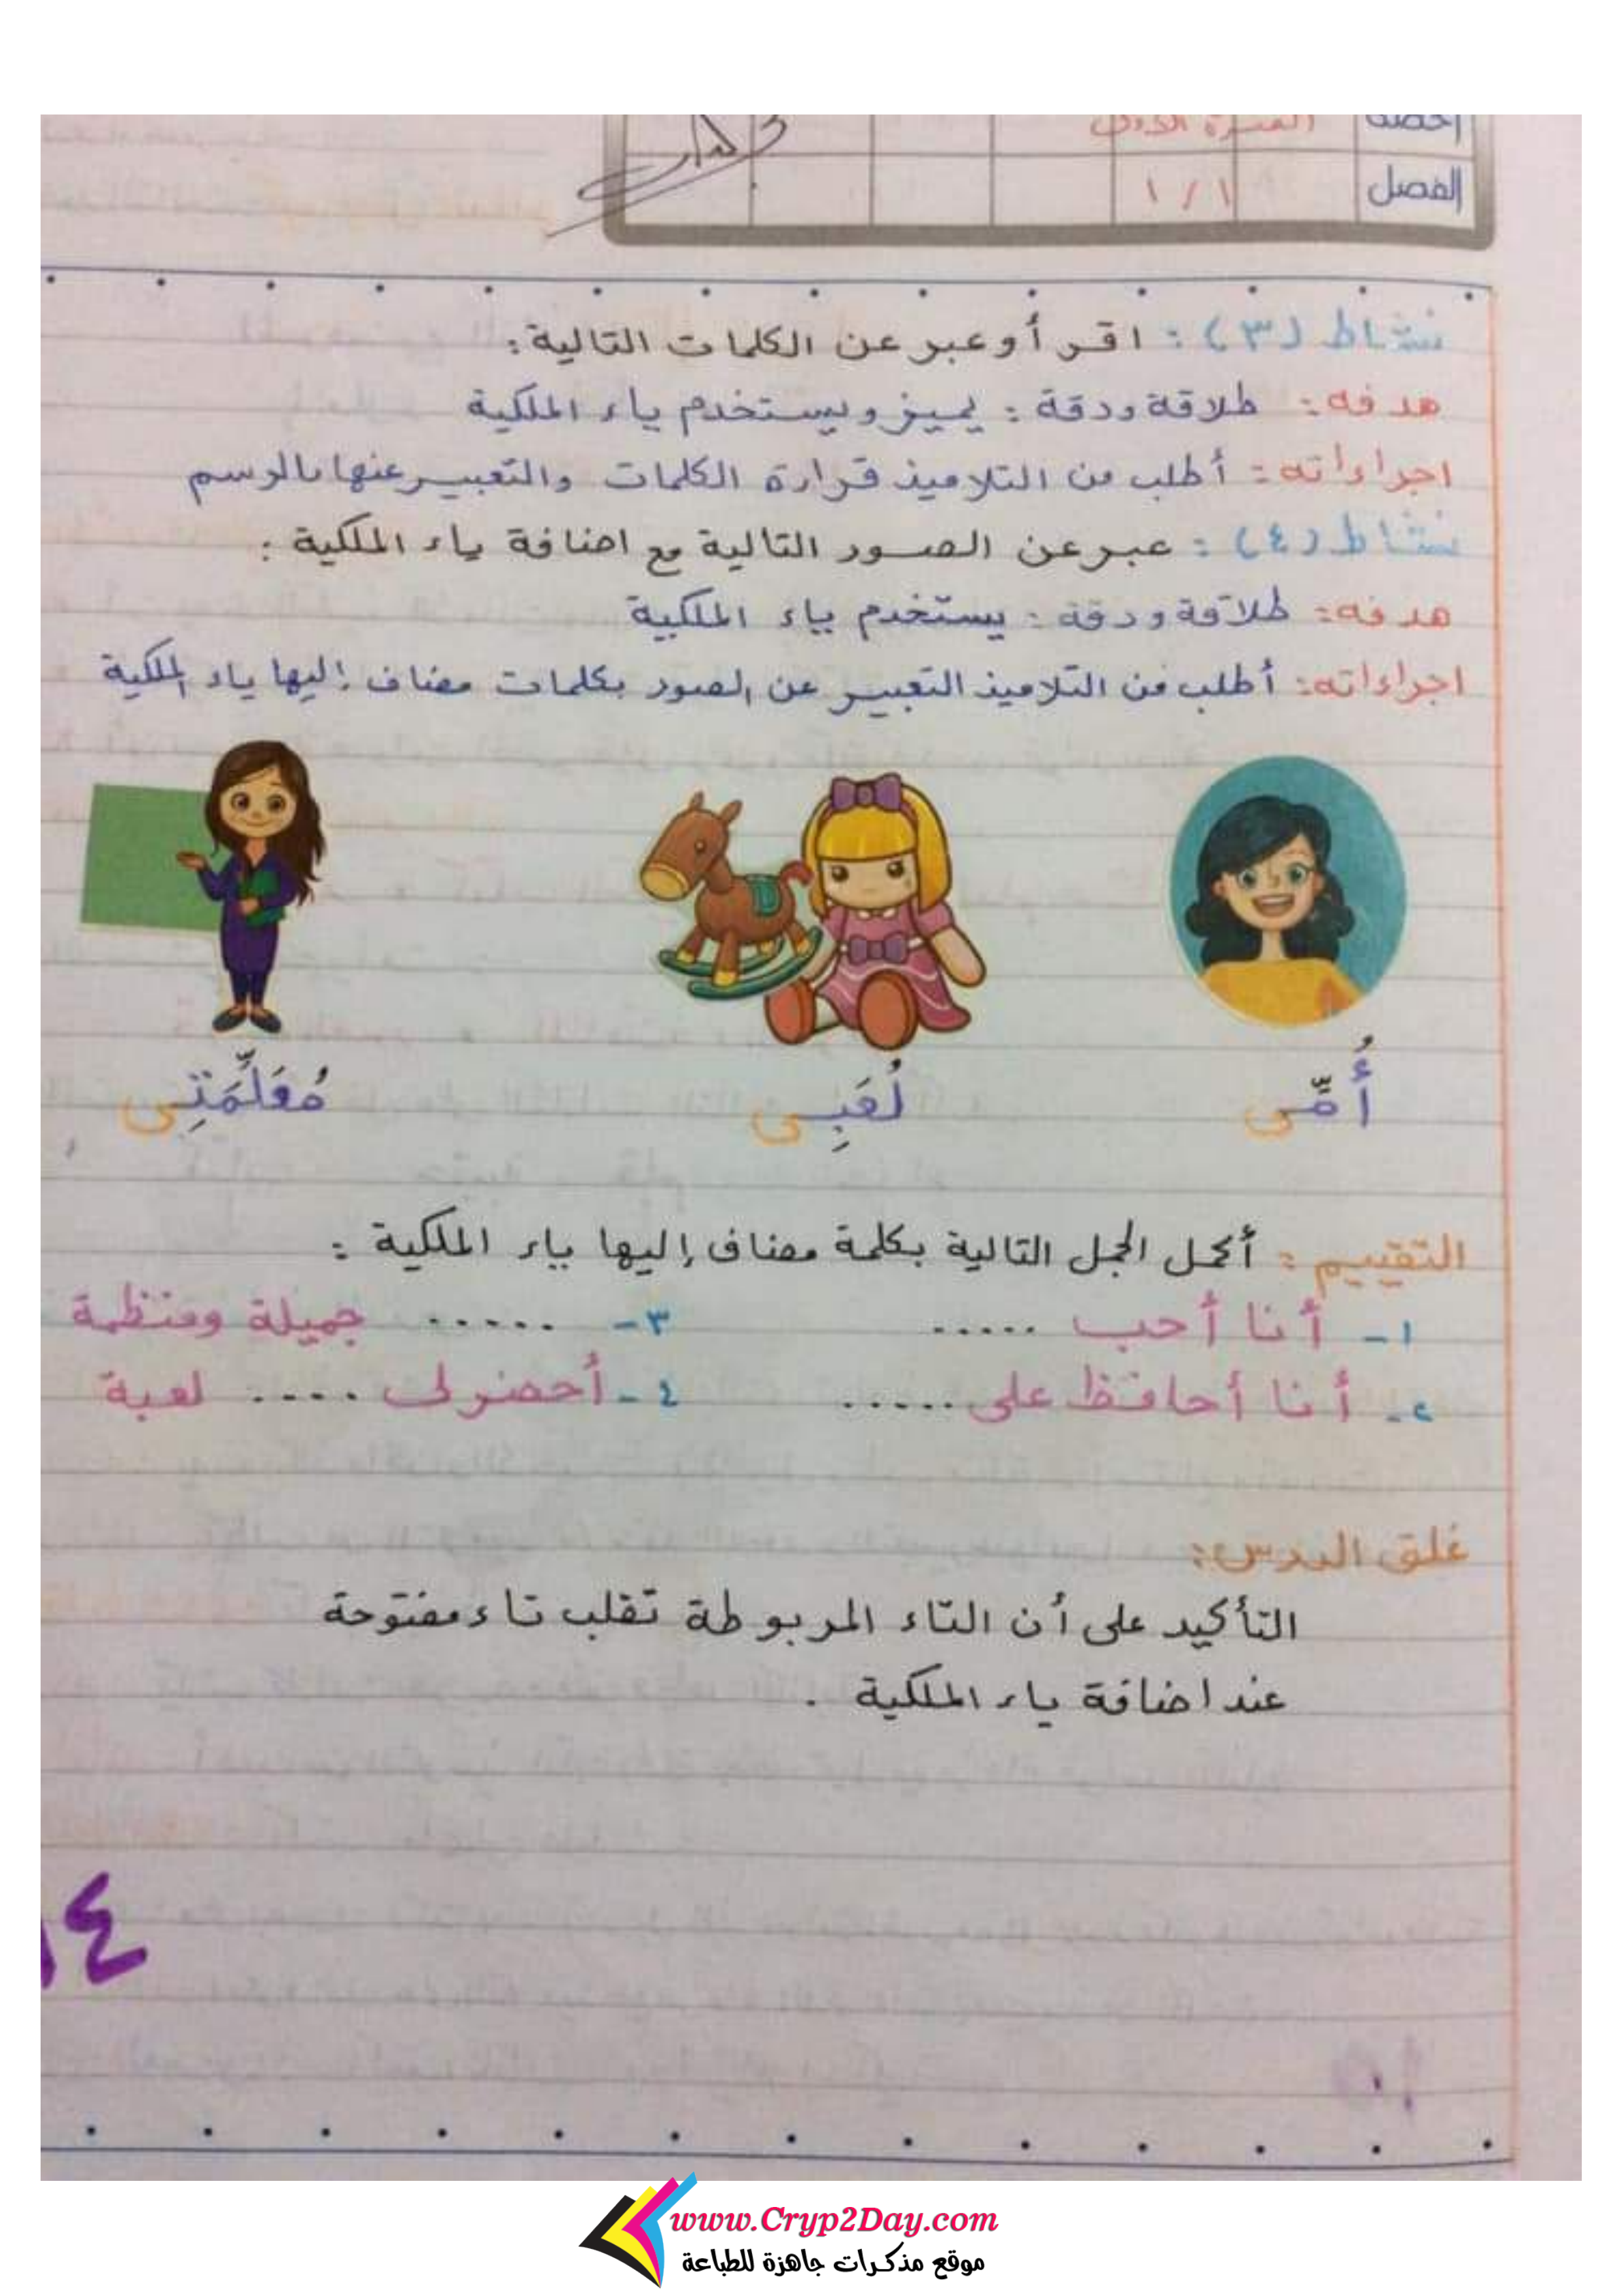 الحصة الفترة الأولى
الفصل ١/١
نشاط (٣): اقرأ وعبر عن الكلمات التالية:
هدفه: طلاقة ودقة: يميز ويستخدم ياء الملكية
اجراءاته: أطلب من التلاميذ قراءة الكلمات والتعبير عنها بالرسم
نشاط (٤): عبر عن الصور التالية مع اضافة ياء الملكية:
هدفه: طلاقة ودقة: يستخدم ياء الملكية
اجراءاته: أطلب من التلاميذ التعبير عن الصور بكلمات مضاف إليها ياء الملكية
أُمِّى لُعَبِى مُعَلِّمَتِى
التقييم: أكمل الجمل التالية بكلمة مضاف إليها ياء الملكية:
١- أنا أحب ..... ٣- ...... جميلة ومنظمة
٢- أنا أحافظ على ...... ٤- أحضر لى .... لعبة
غلق الدرس:
التأكيد على أن التاء المربوطة تقلب تاء مفتوحة
عند اضافة ياء الملكية .
١٤
www.Cryp2Day.com
موقع مذكرات جاهزة للطباعة